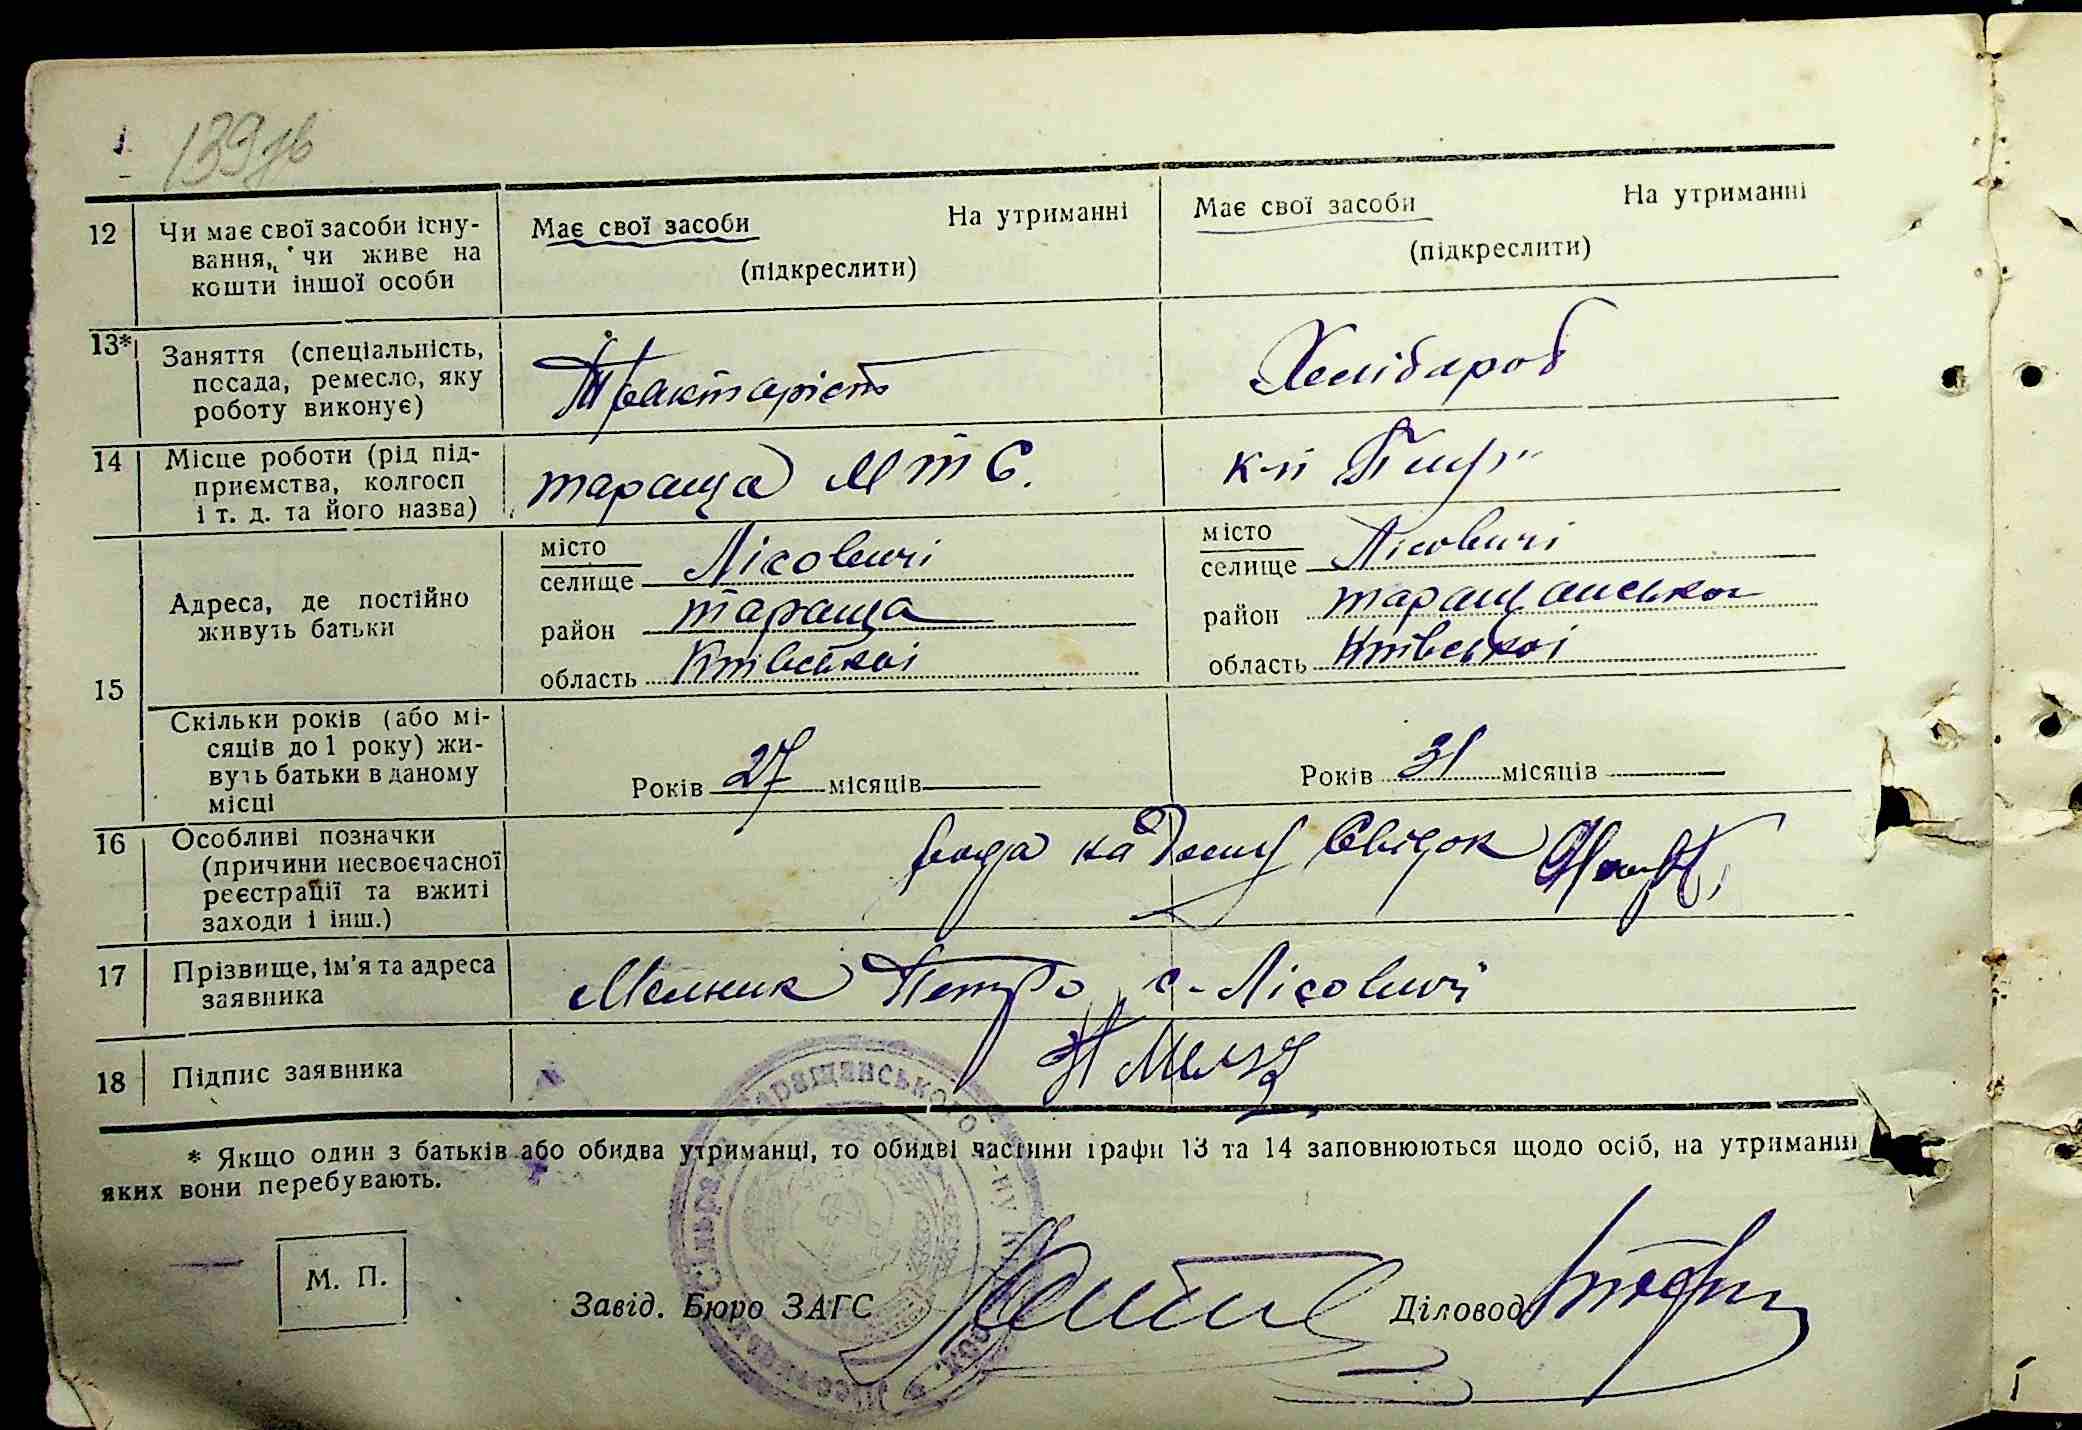 139зв
12
Чи має свої засоби існу-
вання, чи живе на
кошти іншої особи
Має свої засоби На утриманні
(підкреслити)
Має свої засоби На утриманні
(підкреслити)
13*
Заняття (спеціальність,
посада, ремесло, яку
роботу виконує)
Тракторіст
Хлібороб
14
Місце роботи (рід під-
приємства, колгосп
і т. д. та його назва)
тараща МТС.
к-п
15
Адреса, де постійно
живуть батьки
місто
селище Лісовичі
район тараща
область Київської
місто
селище Лісовичі
район таращанського
область Київської
Скільки років (або мі-
сяців до 1 року) жи-
вуть батьки в даному
місці
Років 27 місяців
Років 31 місяців
16
Особливі позначки
(причини несвоєчасної
реєстрації та вжиті
заходи і інш.)
Свідок
17
Прізвище, ім'я та адреса
заявника
Мельник Петро с. Лісовичі
18
Підпис заявника
* Якщо один з батьків або обидва утриманці, то обидві частини графи 13 та 14 заповнюються щодо осіб, на утриманні
яких вони перебувають.
М. П.
Завід. Бюро ЗАГС
Діловод